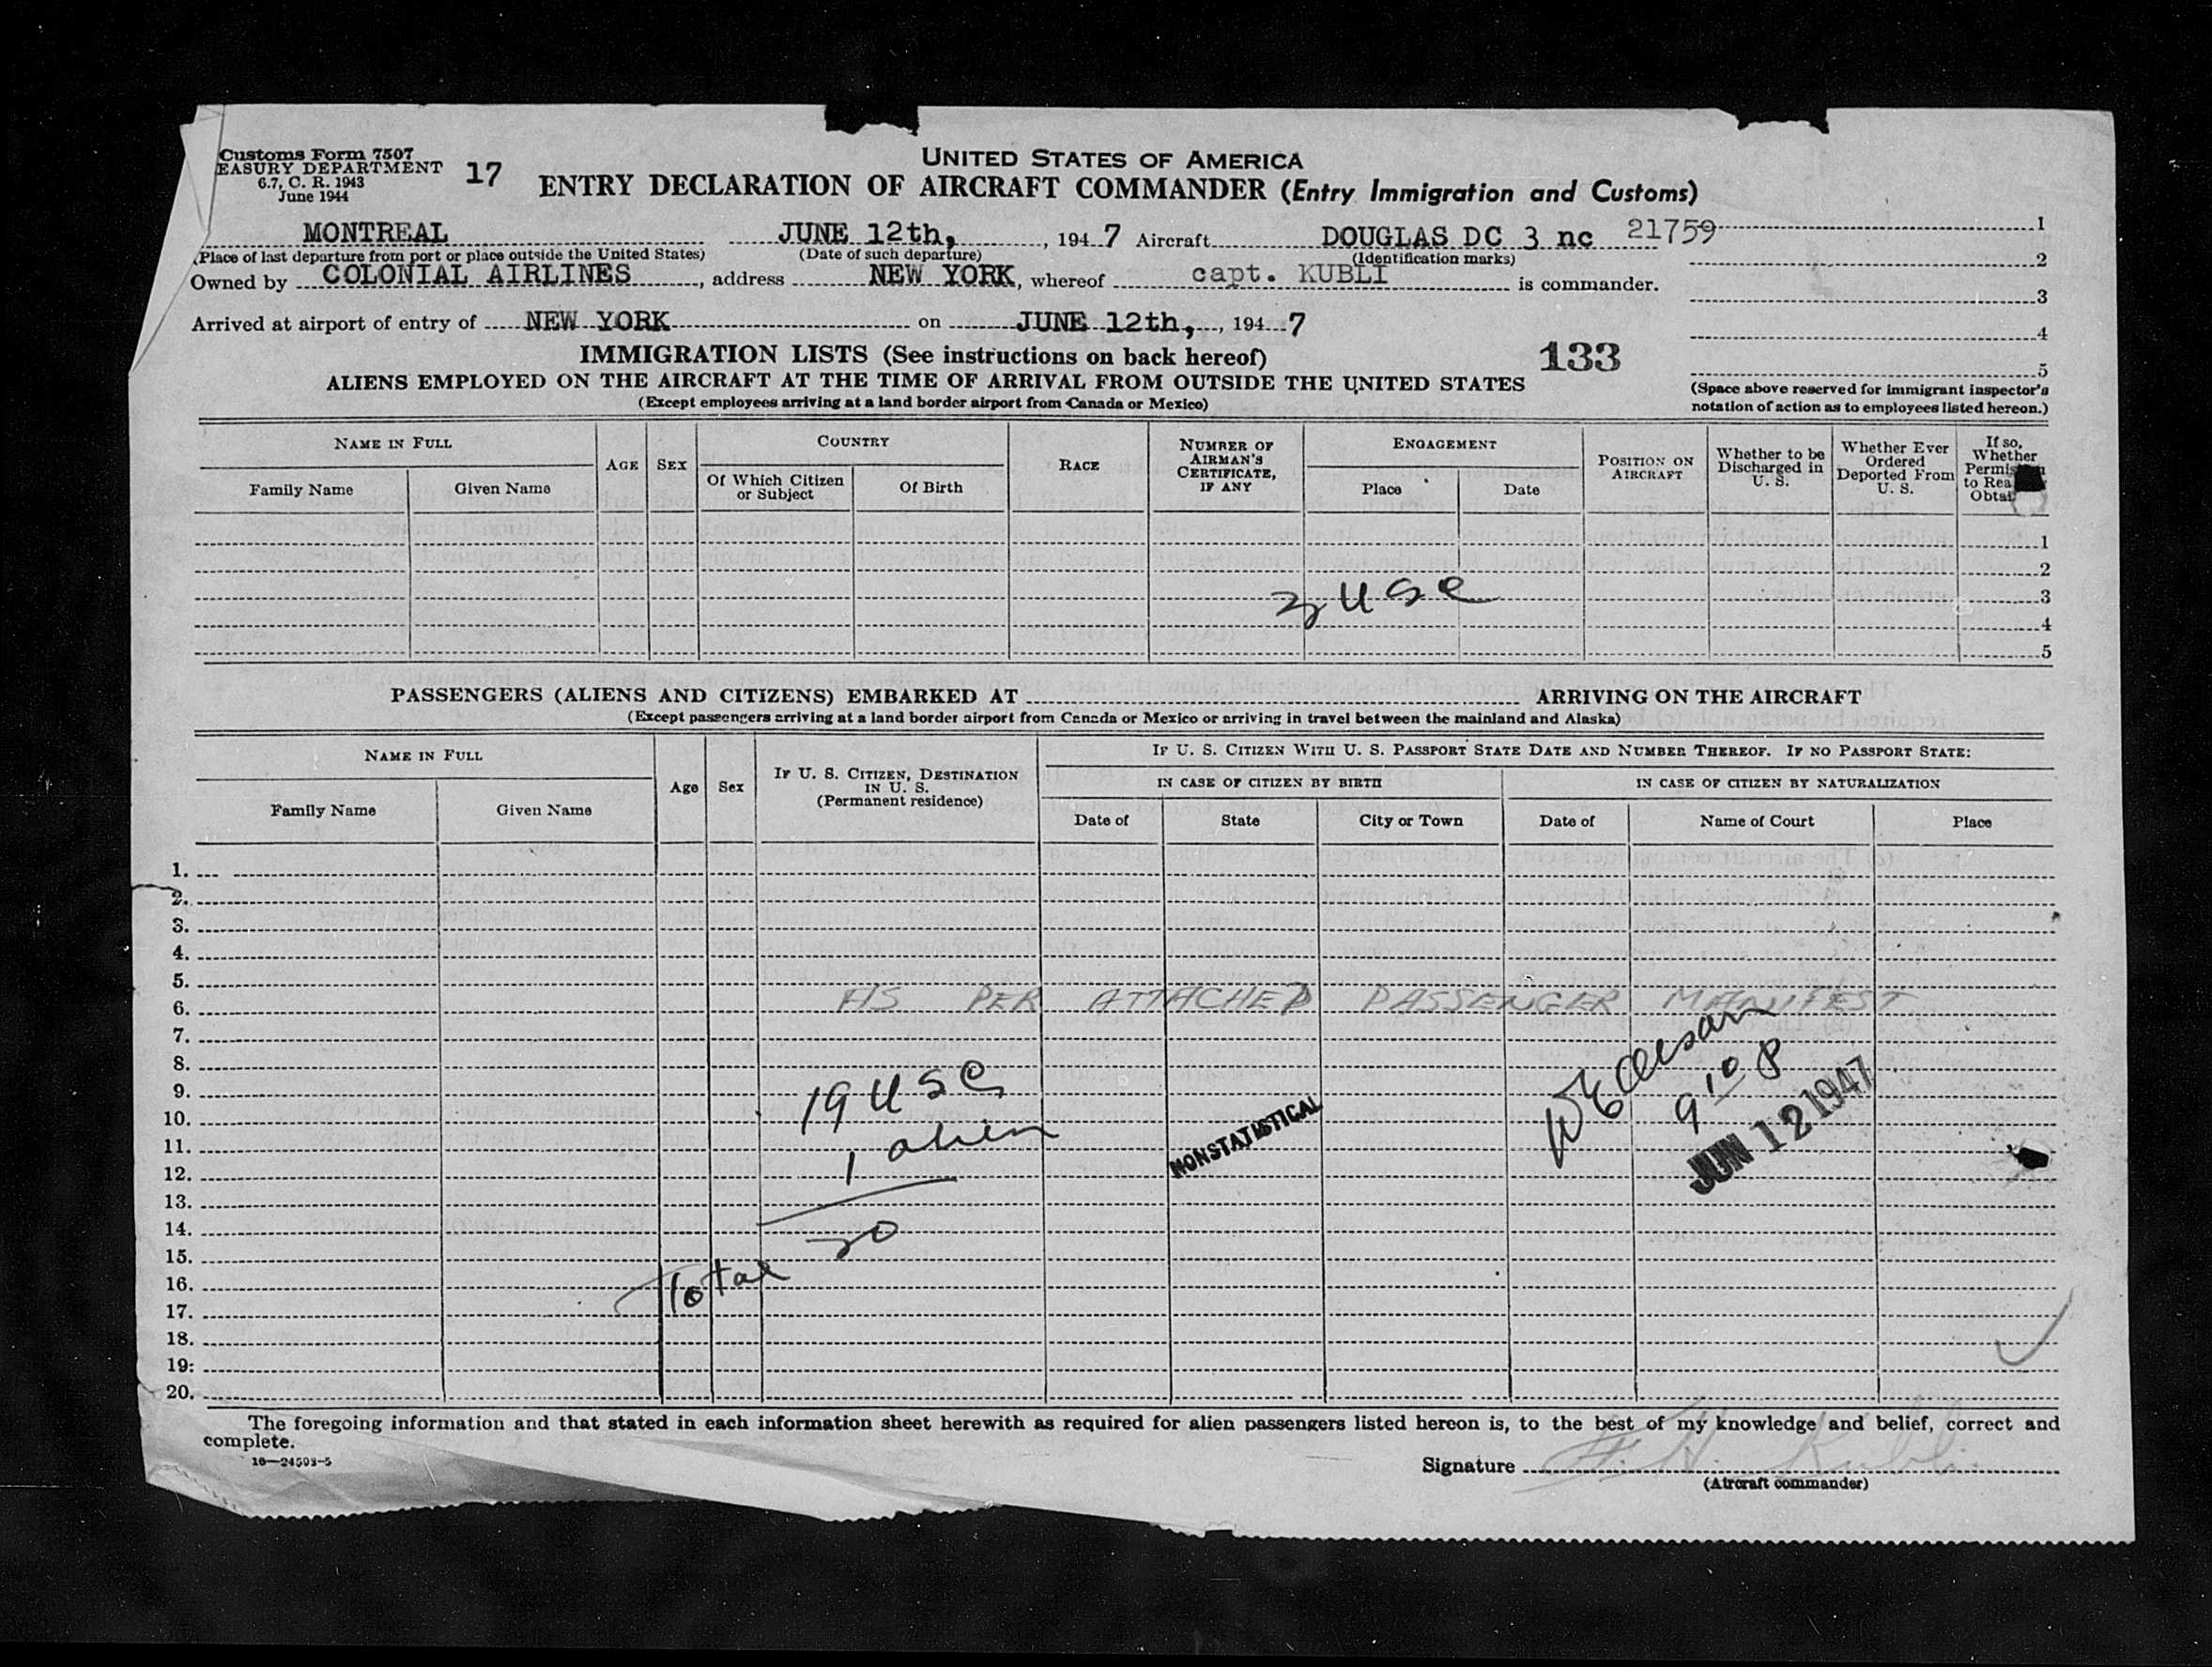 Customs Form 7507
EASURY DEPARTMENT
6.7, C. R. 1943
June 1944
17
UNITED STATES OF AMERICA
ENTRY DECLARATION OF AIRCRAFT COMMANDER (Entry Immigration and Customs)
MONTREAL JUNE 12th, , 194 7 Aircraft DOUGLAS DC 3 nc 21759
(Place of last departure from port or place outside the United States) (Date of such departure) (Identification marks)
Owned by COLONIAL AIRLINES , address NEW YORK , whereof capt. KUBLI is commander.
Arrived at airport of entry of NEW YORK on JUNE 12th, , 194 7
1
2
3
4
5
(Space above reserved for immigrant inspector's
notation of action as to employees listed hereon.)
IMMIGRATION LISTS (See instructions on back hereof) 133
ALIENS EMPLOYED ON THE AIRCRAFT AT THE TIME OF ARRIVAL FROM OUTSIDE THE UNITED STATES
(Except employees arriving at a land border airport from Canada or Mexico)
NAME IN FULL
Family Name Given Name
AGE
SEX
COUNTRY
Of Which Citizen
or Subject
Of Birth
RACE
NUMBER OF
AIRMAN'S
CERTIFICATE,
IF ANY
ENGAGEMENT
Place Date
POSITION ON
AIRCRAFT
Whether to be
Discharged in
U. S.
Whether Ever
Ordered
Deported From
U. S.
If so,
Whether
Permis
to Rea
Obtai
1
2
3 USC 3
4
5
PASSENGERS (ALIENS AND CITIZENS) EMBARKED AT ARRIVING ON THE AIRCRAFT
(Except passengers arriving at a land border airport from Canada or Mexico or arriving in travel between the mainland and Alaska)
NAME IN FULL
Family Name Given Name
Age
Sex
IF U. S. CITIZEN, DESTINATION
IN U. S.
(Permanent residence)
IF U. S. CITIZEN WITH U. S. PASSPORT STATE DATE AND NUMBER THEREOF. IF NO PASSPORT STATE:
IN CASE OF CITIZEN BY BIRTH IN CASE OF CITIZEN BY NATURALIZATION
Date of State City or Town Date of Name of Court Place
1.
2.
3.
4.
5.
6. AS PER ATTACHED PASSENGER MANIFEST
7.
8.
9. 19 USC
10. 9 10 P
11. 1 alien NONSTATISTICAL JUN 12 1947
12.
13.
14. 20
15.
16. Total
17.
18.
19.
20.
The foregoing information and that stated in each information sheet herewith as required for alien passengers listed hereon is, to the best of my knowledge and belief, correct and
complete.
16—24593-5
Signature F. H. Kubli
(Aircraft commander)